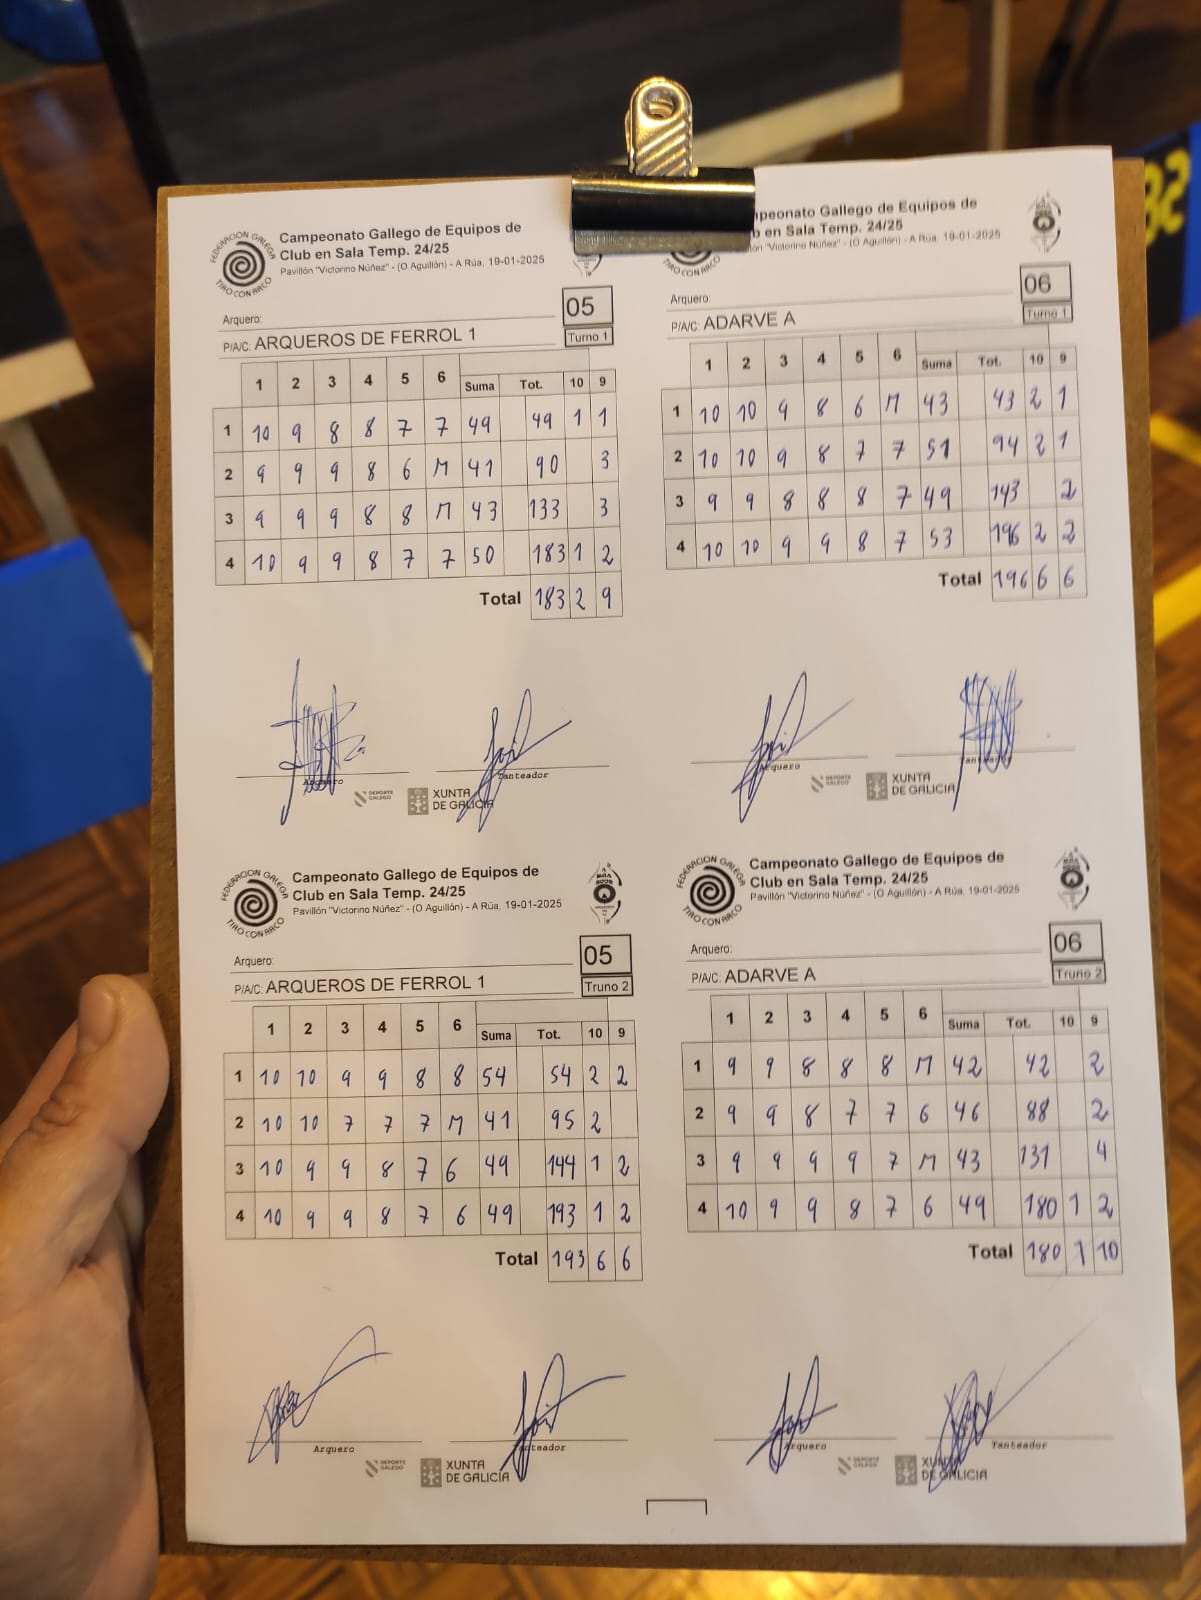 FEDERACION GALEGA
TIRO CON ARCO
Campeonato Gallego de Equipos de
Club en Sala Temp. 24/25
Pavillón "Victorino Núñez" - (O Aguillón) - A Rúa, 19-01-2025
Arquero:
05
P/A/C: ARQUEROS DE FERROL 1
Turno 1
1 2 3 4 5 6 Suma Tot. 10 9
1 10 9 8 8 7 7 49 49 1 1
2 9 9 9 8 6 M 41 90 3
3 9 9 9 8 8 M 43 133 3
4 10 9 9 8 7 7 50 183 1 2
Total 183 2 9
Arquero
Tanteador
DEPORTE GALEGO
XUNTA
DE GALICIA
mpeonato Gallego de Equipos de
b en Sala Temp. 24/25
"Victorino Núñez" - (O Aguillón) - A Rúa, 19-01-2025
TIRO CON ARCO
Arquero:
06
P/A/C: ADARVE A
Turno 1
1 2 3 4 5 6 Suma Tot. 10 9
1 10 10 9 8 6 M 43 43 2 1
2 10 10 9 8 7 7 51 94 2 1
3 9 9 8 8 8 7 49 143 2
4 10 10 9 9 8 7 53 196 2 2
Total 196 6 6
Arquero
Tanteador
DEPORTE GALEGO
XUNTA
DE GALICIA
FEDERACION GALEGA
TIRO CON ARCO
Campeonato Gallego de Equipos de
Club en Sala Temp. 24/25
Pavillón "Victorino Núñez" - (O Aguillón) - A Rúa, 19-01-2025
Arquero:
05
P/A/C: ARQUEROS DE FERROL 1
Truno 2
1 2 3 4 5 6 Suma Tot. 10 9
1 10 10 9 9 8 8 54 54 2 2
2 10 10 7 7 7 M 41 95 2
3 10 9 9 8 7 6 49 144 1 2
4 10 9 9 8 7 6 49 193 1 2
Total 193 6 6
Arquero
Tanteador
DEPORTE GALEGO
XUNTA
DE GALICIA
FEDERACION GALEGA
TIRO CON ARCO
Campeonato Gallego de Equipos de
Club en Sala Temp. 24/25
Pavillón "Victorino Núñez" - (O Aguillón) - A Rúa, 19-01-2025
Arquero:
06
P/A/C: ADARVE A
Truno 2
1 2 3 4 5 6 Suma Tot. 10 9
1 9 9 8 8 8 M 42 42 2
2 9 9 8 7 7 6 46 88 2
3 9 9 9 9 7 M 43 131 4
4 10 9 9 8 7 6 49 180 1 2
Total 180 1 10
Arquero
Tanteador
DEPORTE GALEGO
XUNTA
DE GALICIA